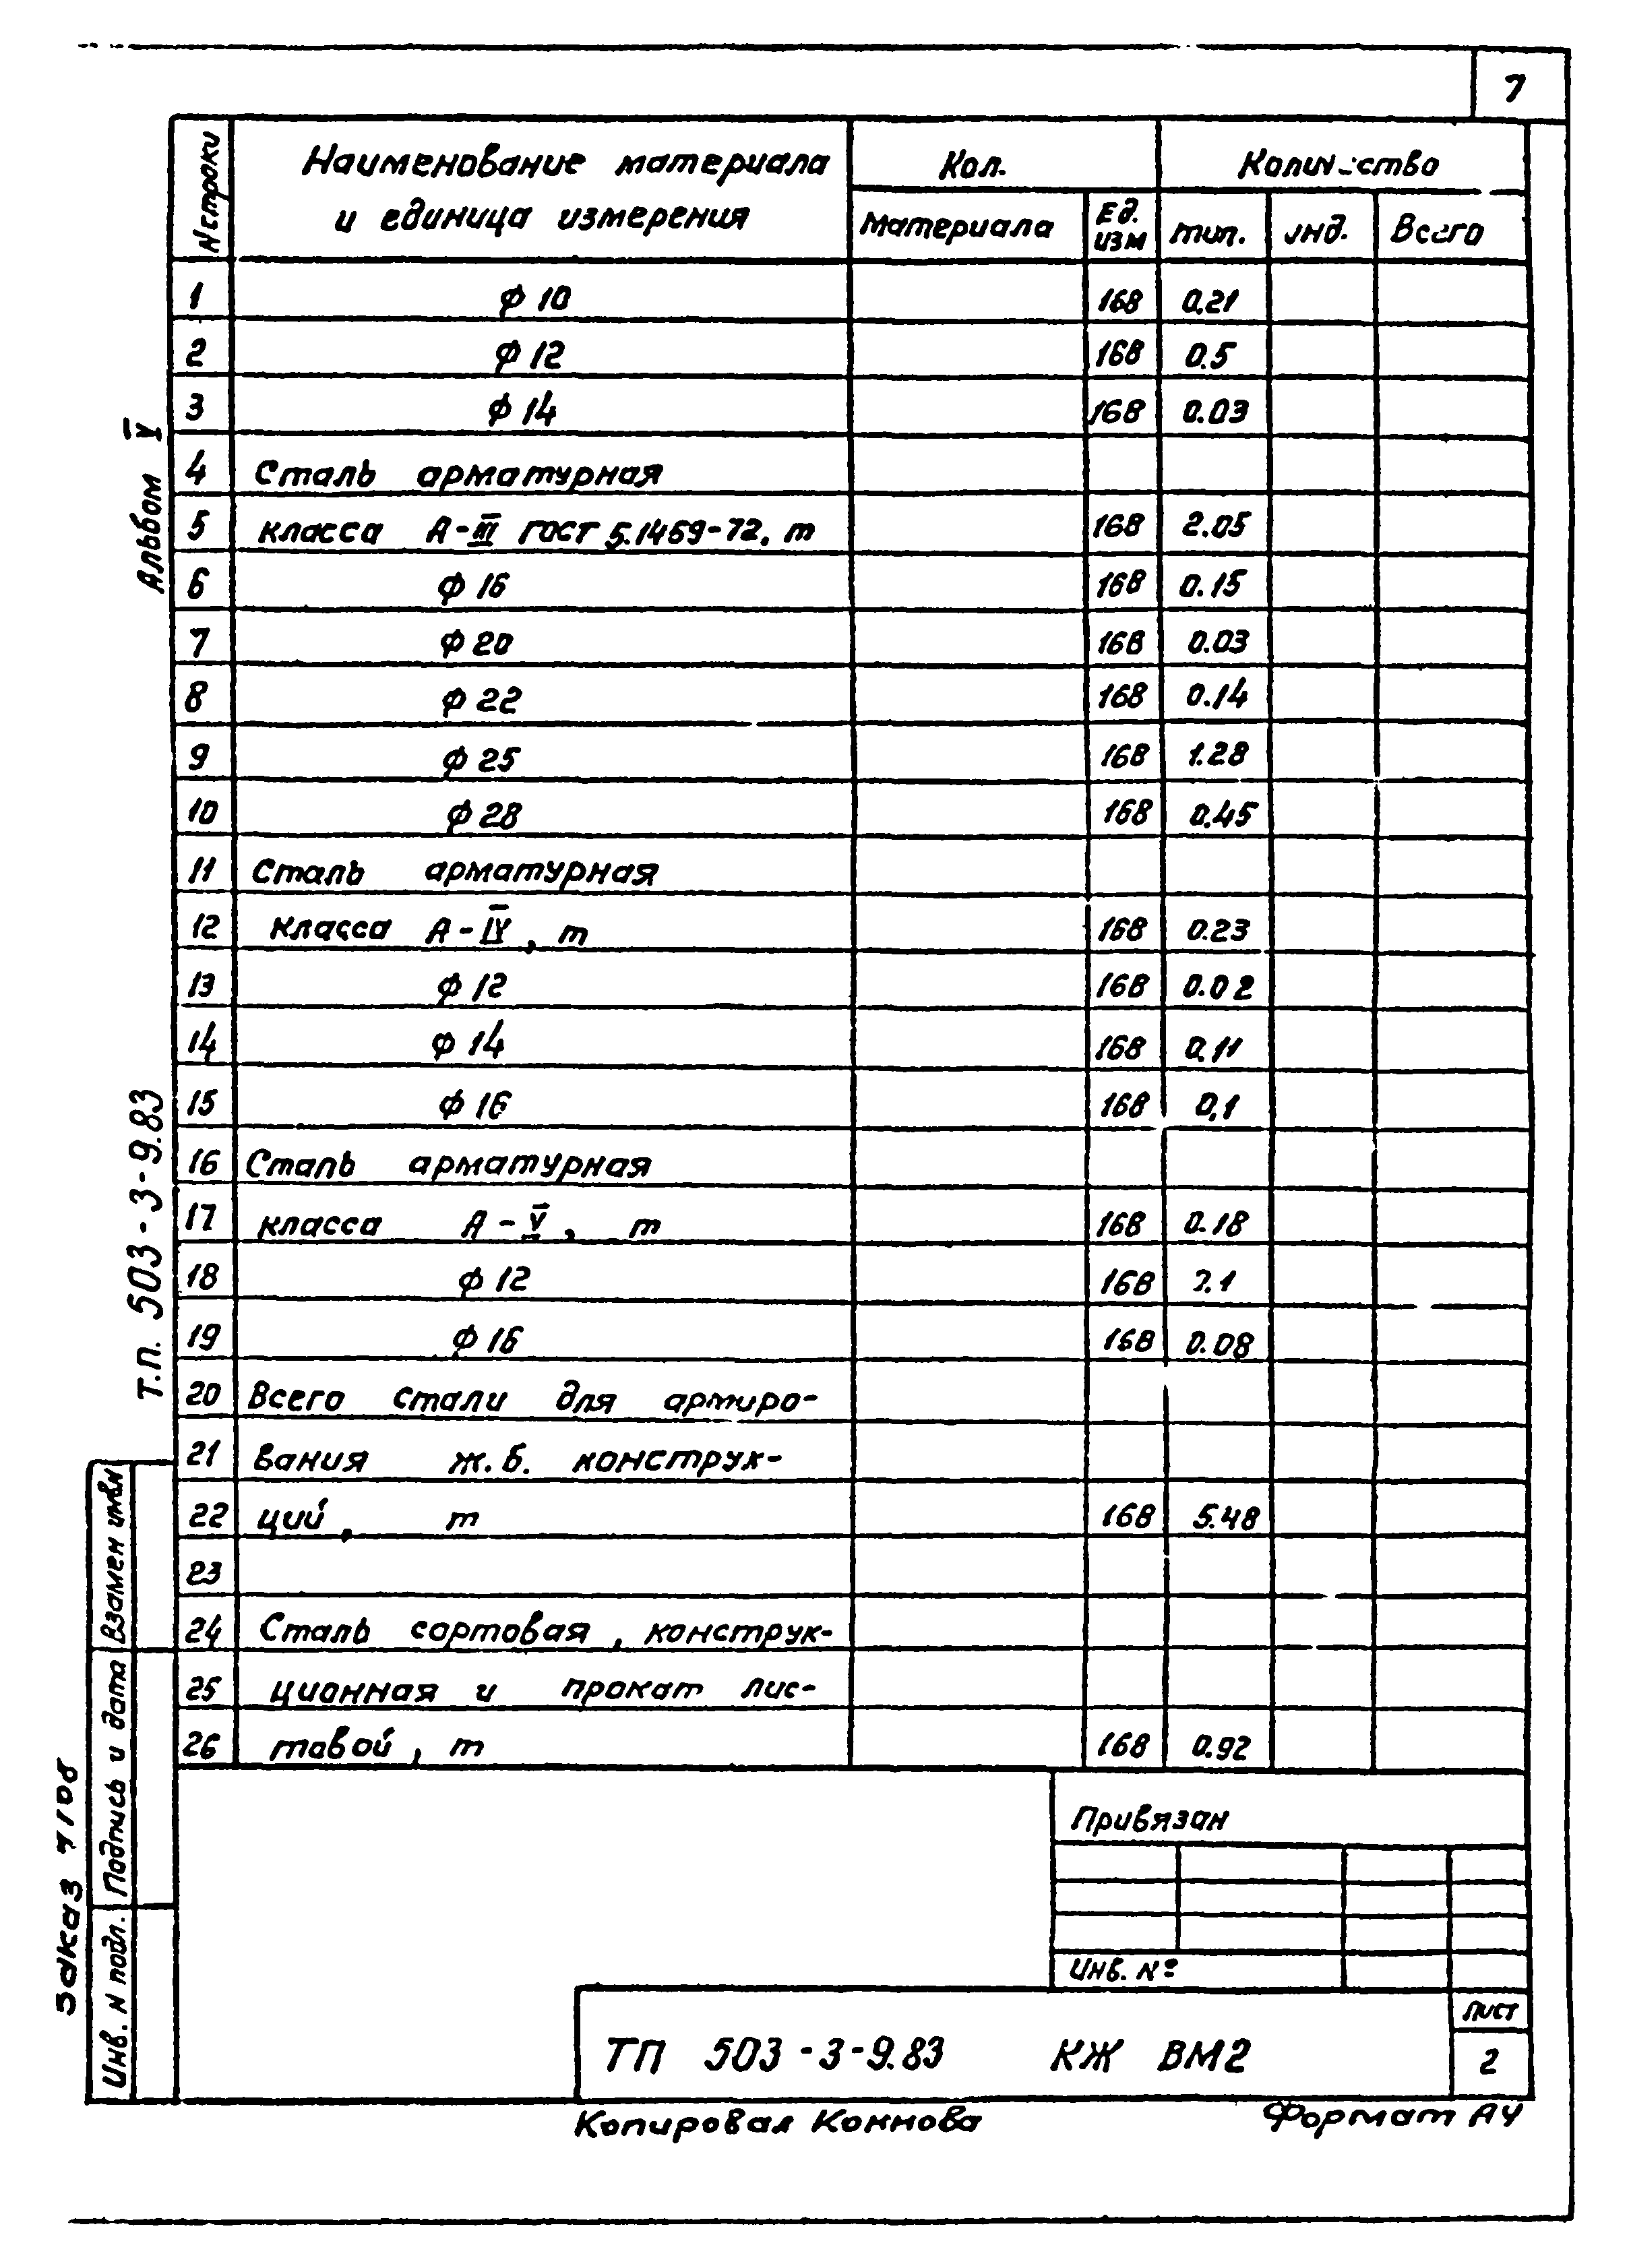 7
N строки Наименование материала и единица измерения Кол. Количество
материала Ед. изм тип. инд. Всего
1 ф 10 168 0.21
2 ф 12 168 0.5
3 ф 14 168 0.03
4 Сталь арматурная
5 класса А-III ГОСТ 5.1459-72, т 168 2.05
6 ф 16 168 0.15
7 ф 20 168 0.03
8 ф 22 168 0.14
9 ф 25 168 1.28
10 ф 28 168 0.45
11 Сталь арматурная
12 класса А-IV, т 168 0.23
13 ф 12 168 0.02
14 ф 14 168 0.11
15 ф 16 168 0,1
16 Сталь арматурная
17 класса А-V, т 168 0.18
18 ф 12 168
19 ф 16 168 0.08
20 Всего стали для армиро-
21 вания ж.б. конструк-
22 ций, т 168 5.48
23
24 Сталь сортовая, конструк-
25 ционная и прокат лис-
26 товой, т 168 0.92
Альбом V
Т.П. 503-3-9.83
Взамен инв N
Подпись и дата
Инв. N подл.
Заказ
Привязан
Инв. №
ТП 503-3-9.83 КЖ ВМ2
лист
2
Копировал Коннова
Формат А4